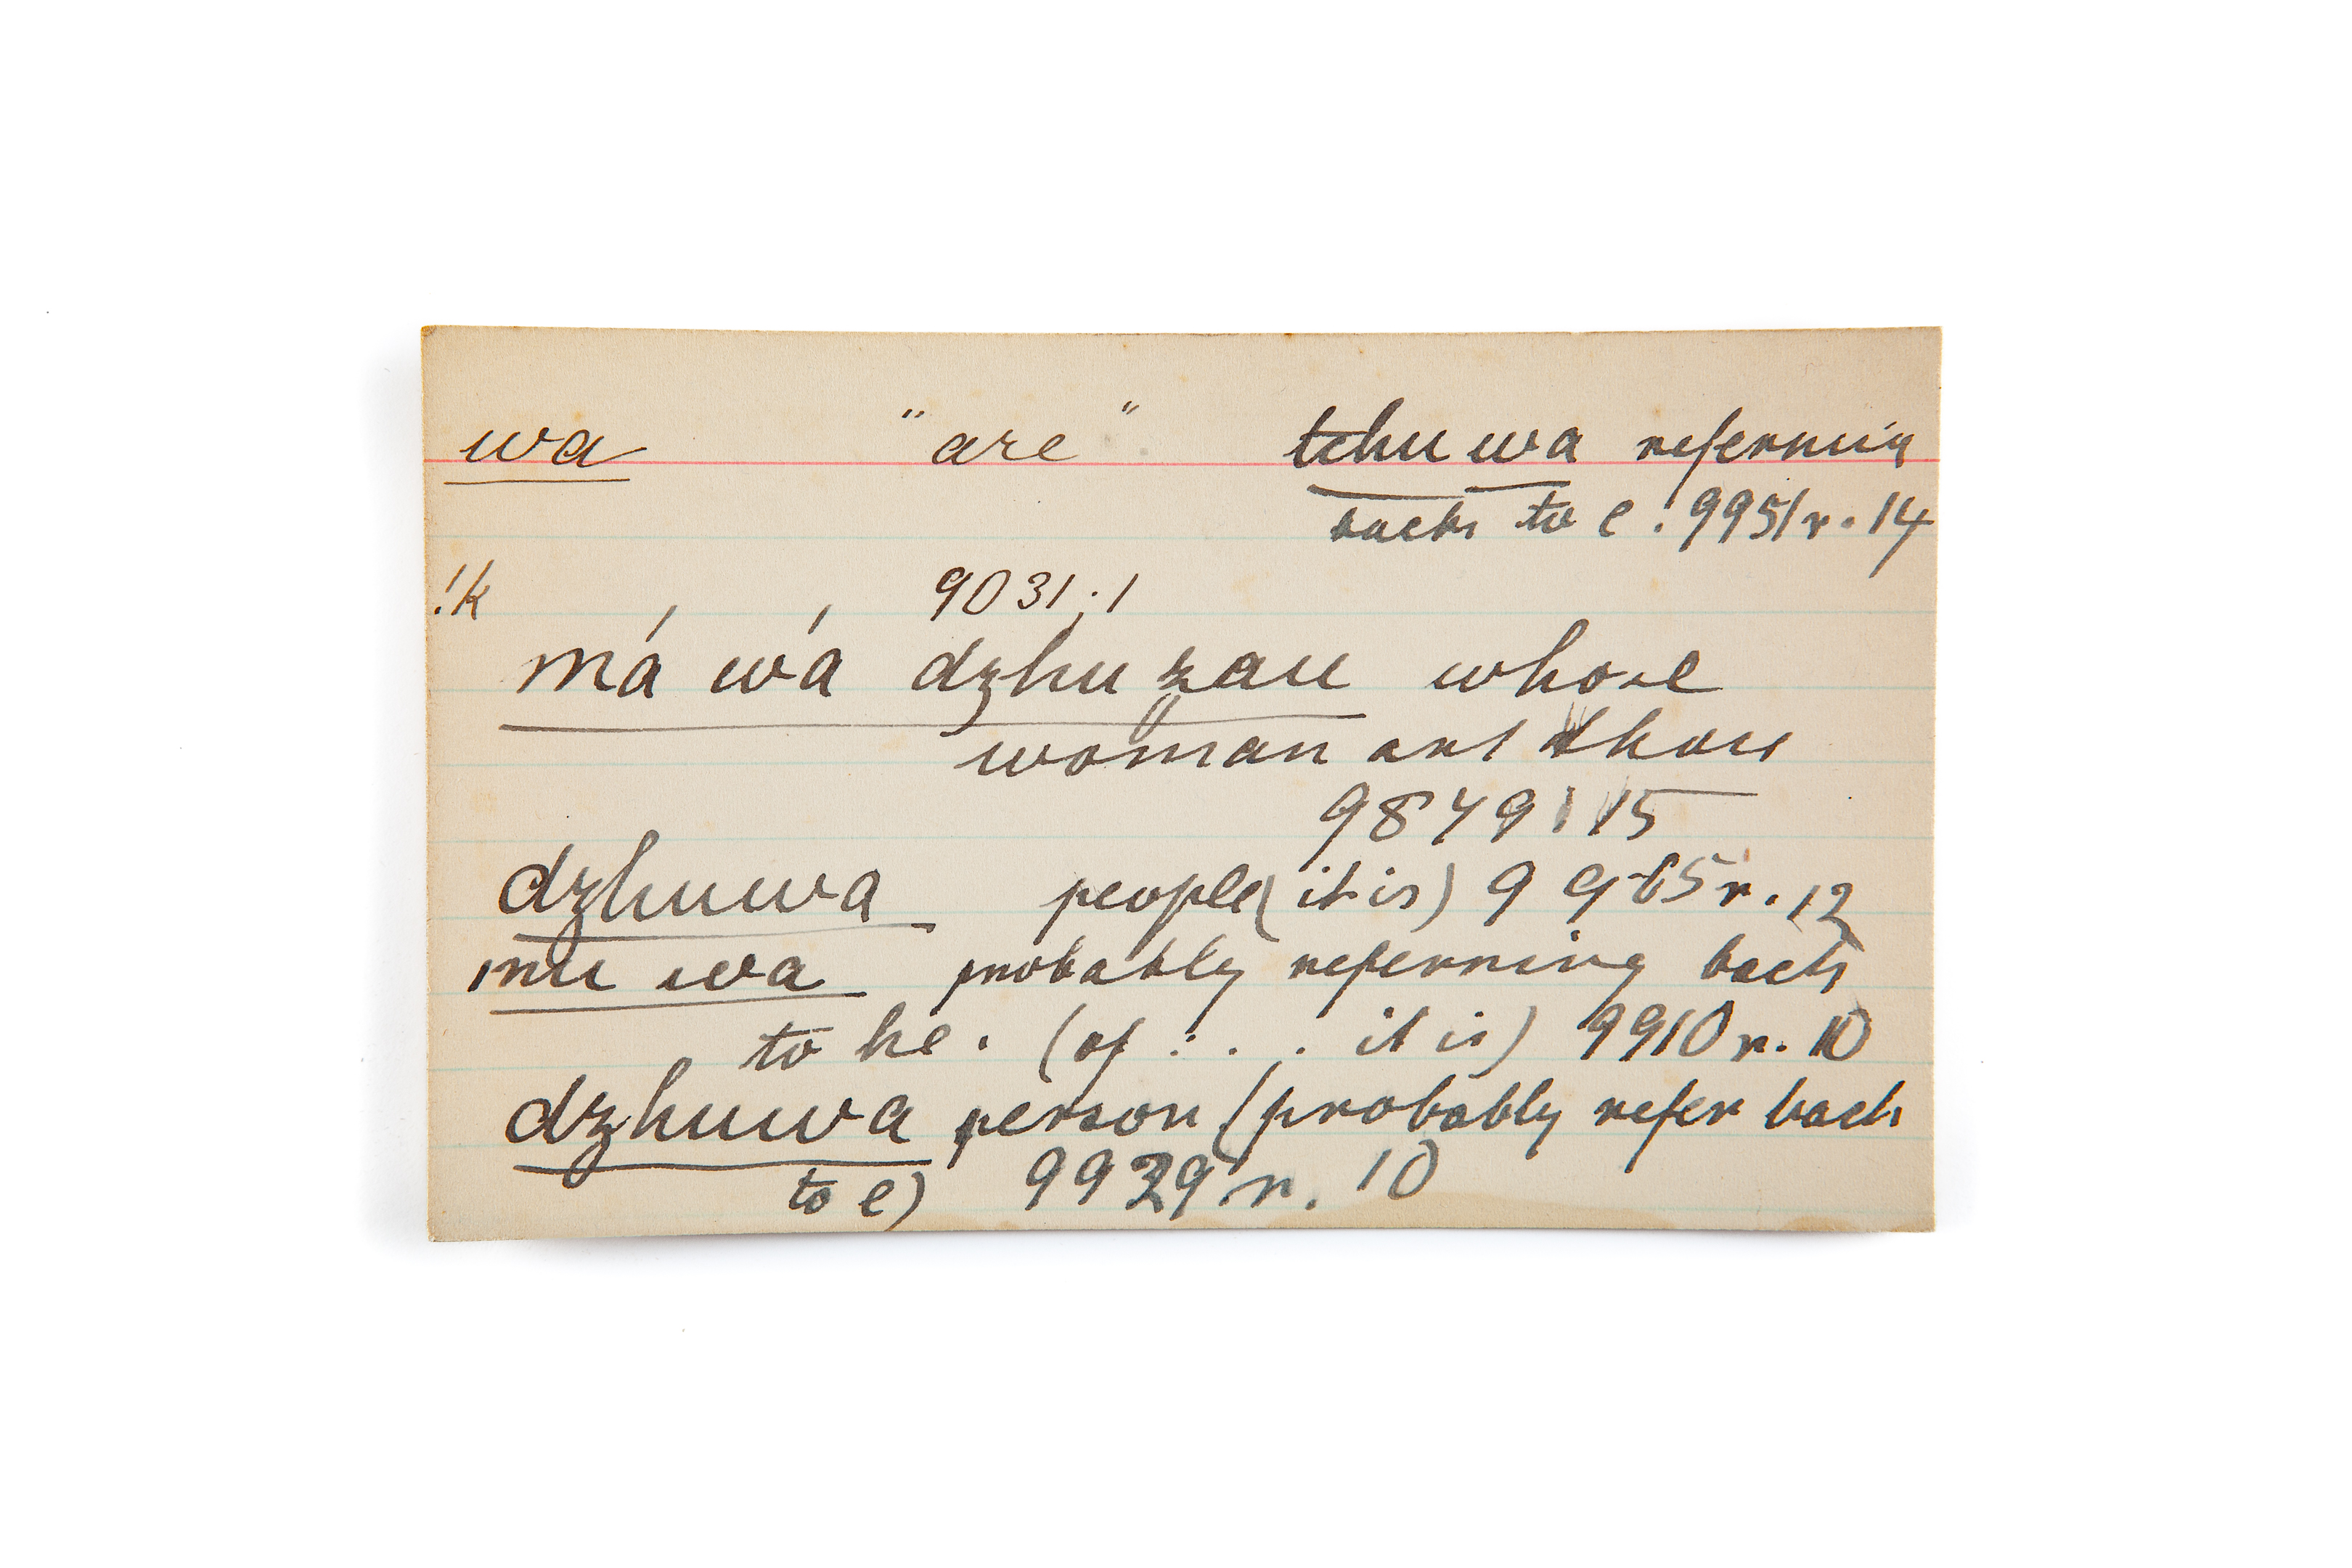 wa "are" tchu wa referring
back to e. 9951 r. 14
!k 9031.1
má wá dzhu zau whose
woman art thou
9849: 15
dzhuwa people (it is) 9965 r. 12
mu wa probably referring back
to he. (of . . . . it is) 9910 r. 10
dzhuwa person (probably refer back
to e) 9929 r. 10